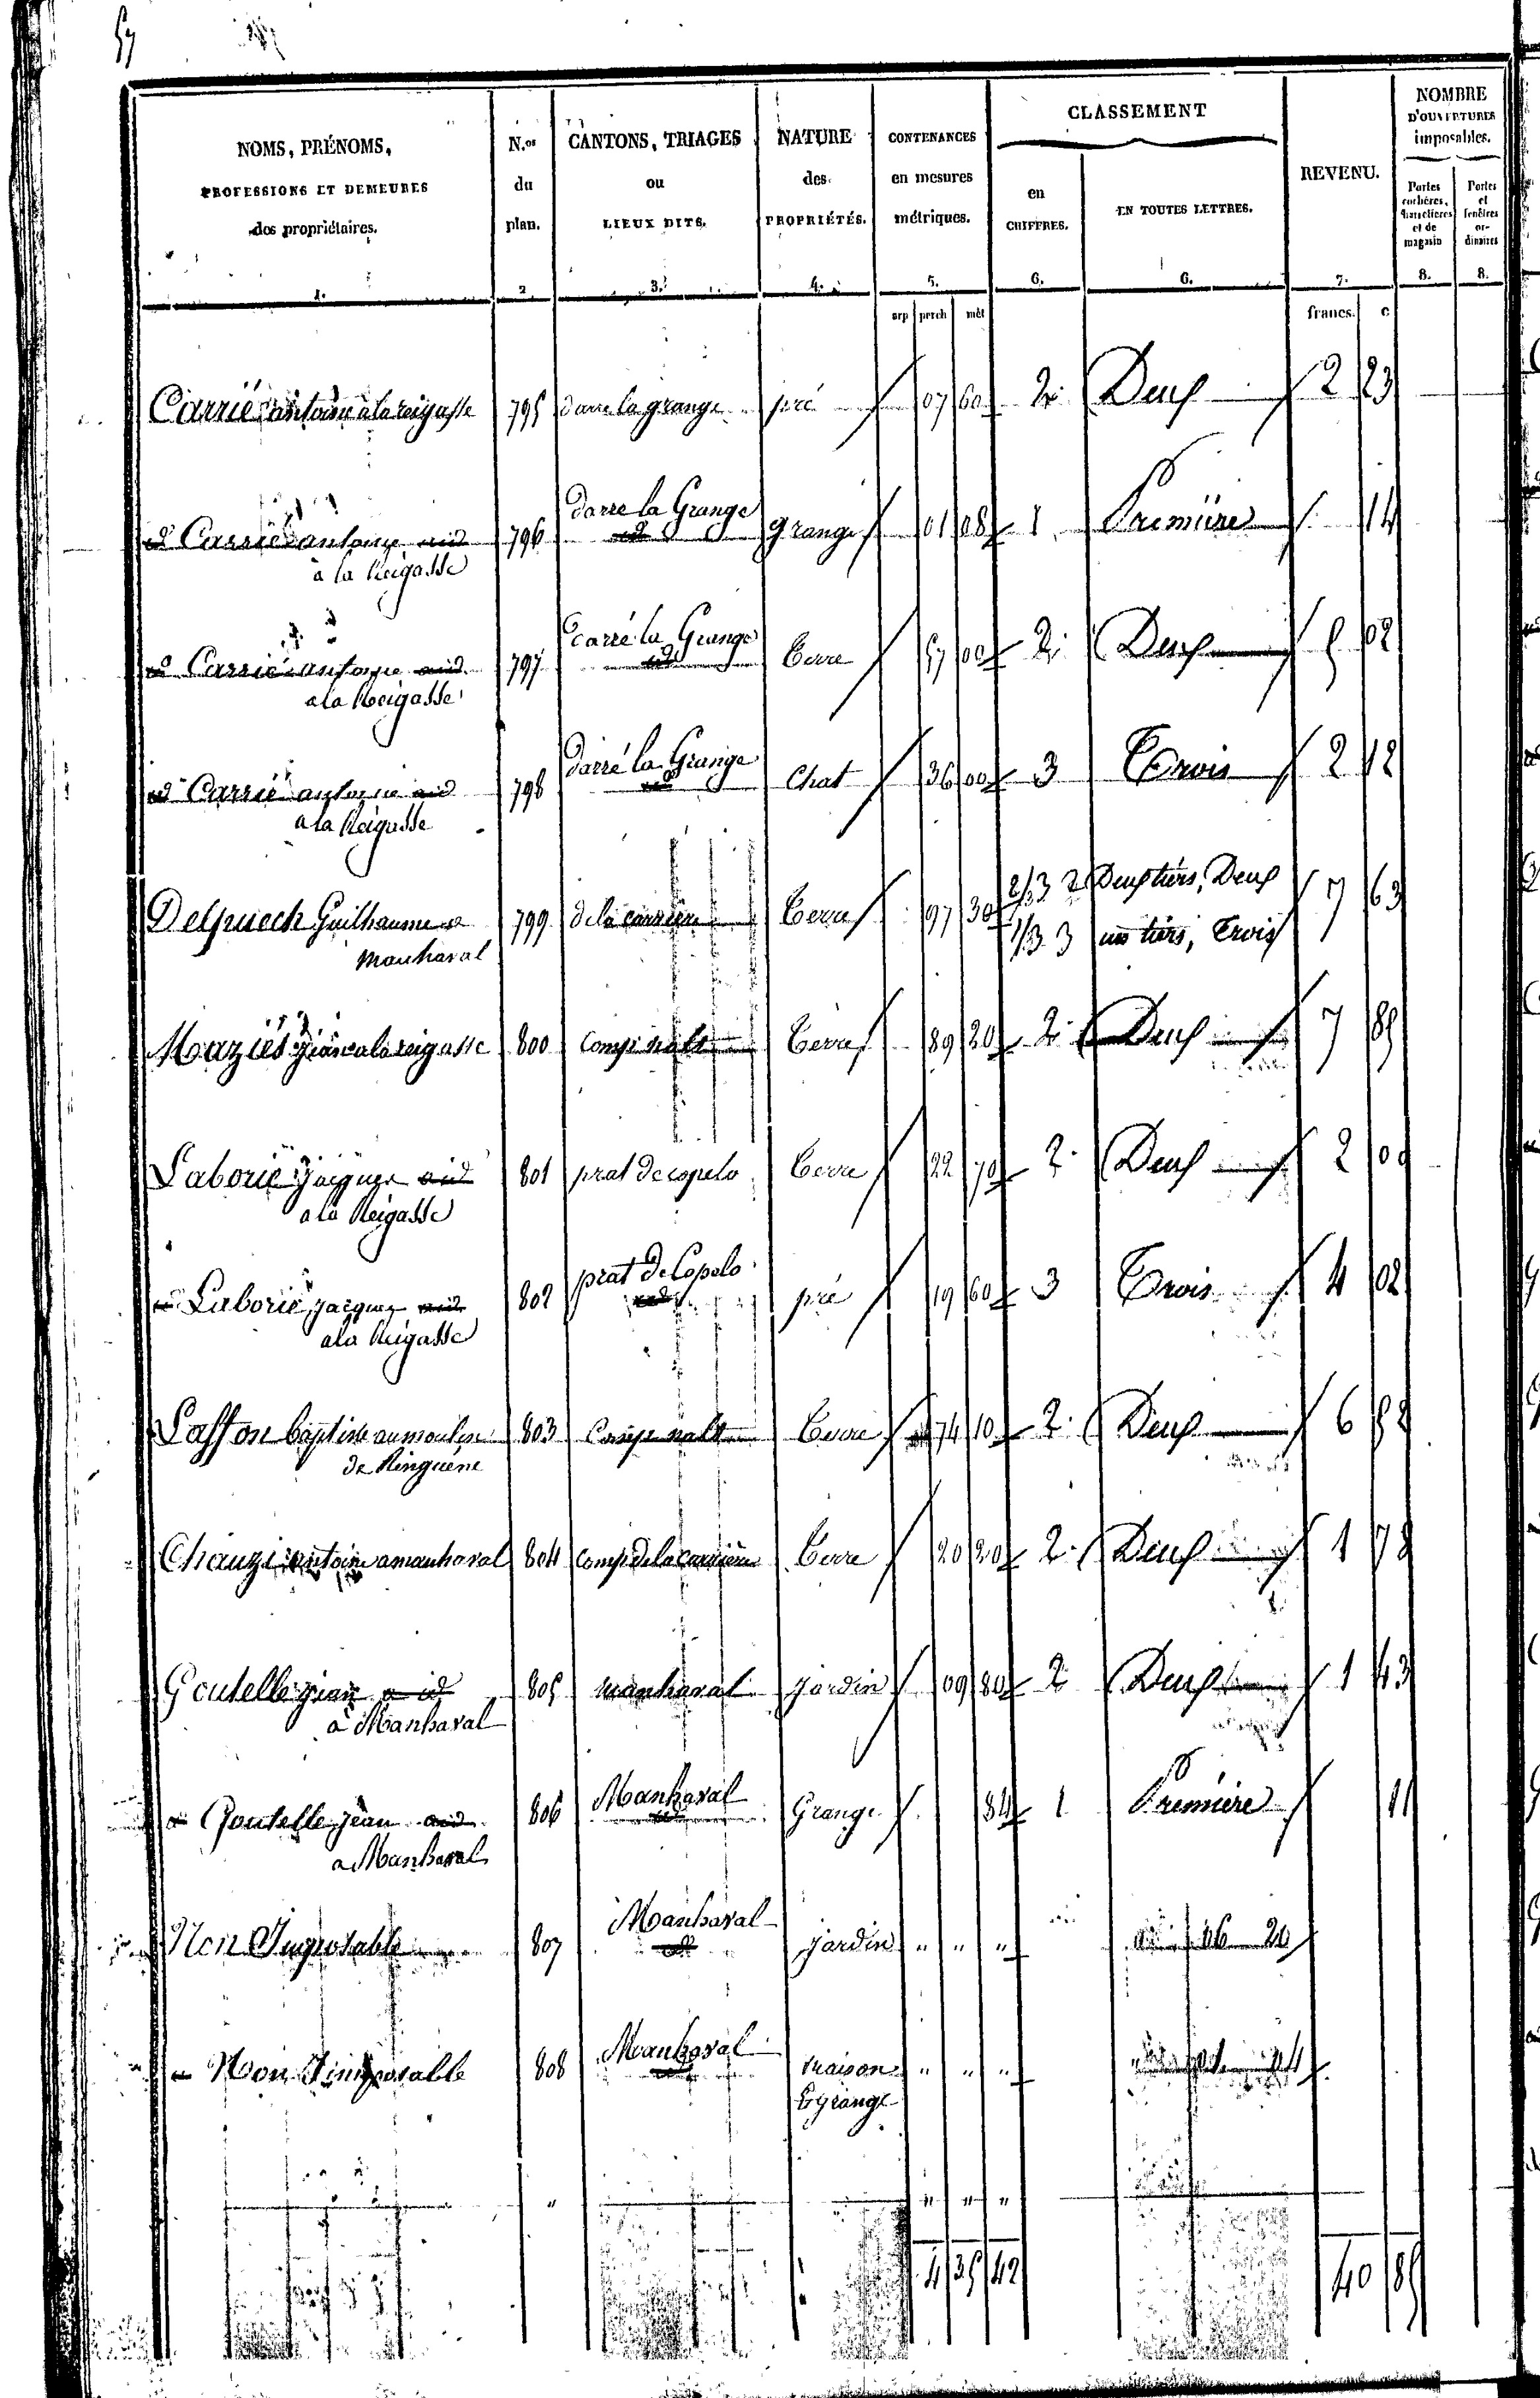 57
NOMS, PRÉNOMS, PROFESSIONS ET DEMEURES des propriétaires. N.os du plan. CANTONS, TRIAGES ou LIEUX DITS. NATURE des PROPRIÉTÉS. CONTENANCES en mesures métriques. CLASSEMENT en CHIFFRES. EN TOUTES LETTRES. REVENU. NOMBRE D'OUVERTURES imposables. Portes cochères, charretières et de magasin Portes et fenêtres ordinaires
1. 2 3. 4. 5. 6. 6. 7. 8. 8.
arp perch mèt francs. c
Carrié antoine a la reigasse 795 darre la grange pré 07 60 2 Deux 2 23
id Carrié antoine aid 796 darre la Grange id grange 01 08 1 Première 14
à la Reigasse
id Carrié antoine aid 797 darré la Grange id terre 57 00 2 Deux 5 02
a la Reigasse
id Carrié antoine aid 798 darré la Grange id Chat 36 00 3 Trois 2 12
a la Reigasse
Delpuech Guilhaume a 799 de la carrière terre 97 30 2/3 2 Deux tiers, Deux 7 63
manhaval 1/3 3 un tiers, Trois
Maziés jean a la reigasse 800 Camp nalt terre 89 20 2 Deux 7 85
Laborie jacques aid 801 prat de copelo terre 22 70 2 Deux 2 00
a la Reigasse
id Laborie jacques aid 802 prat De Copelo id pré 19 60 3 Trois 4 02
a la Reigasse
Laffon baptiste au moulin 803 Camp nalt terre 74 10 2 Deux 6 52
de Ringuene
Chauzi antoine a manhaval 804 camp de la carrière terre 20 20 2 Deux 1 78
Goutelle jean a id 805 manhaval jardin 09 80 2 Deux 1 43
à Manhaval
id Goutelle jean aid 806 Manhaval id Grange 84 1 Première 11
a Manhaval
Non Imposable 807 Manhaval id jardin " " " 06 20
Non Imposable 808 Manhaval id maison " " "
& grange
" " " "
4 35 42 40 85